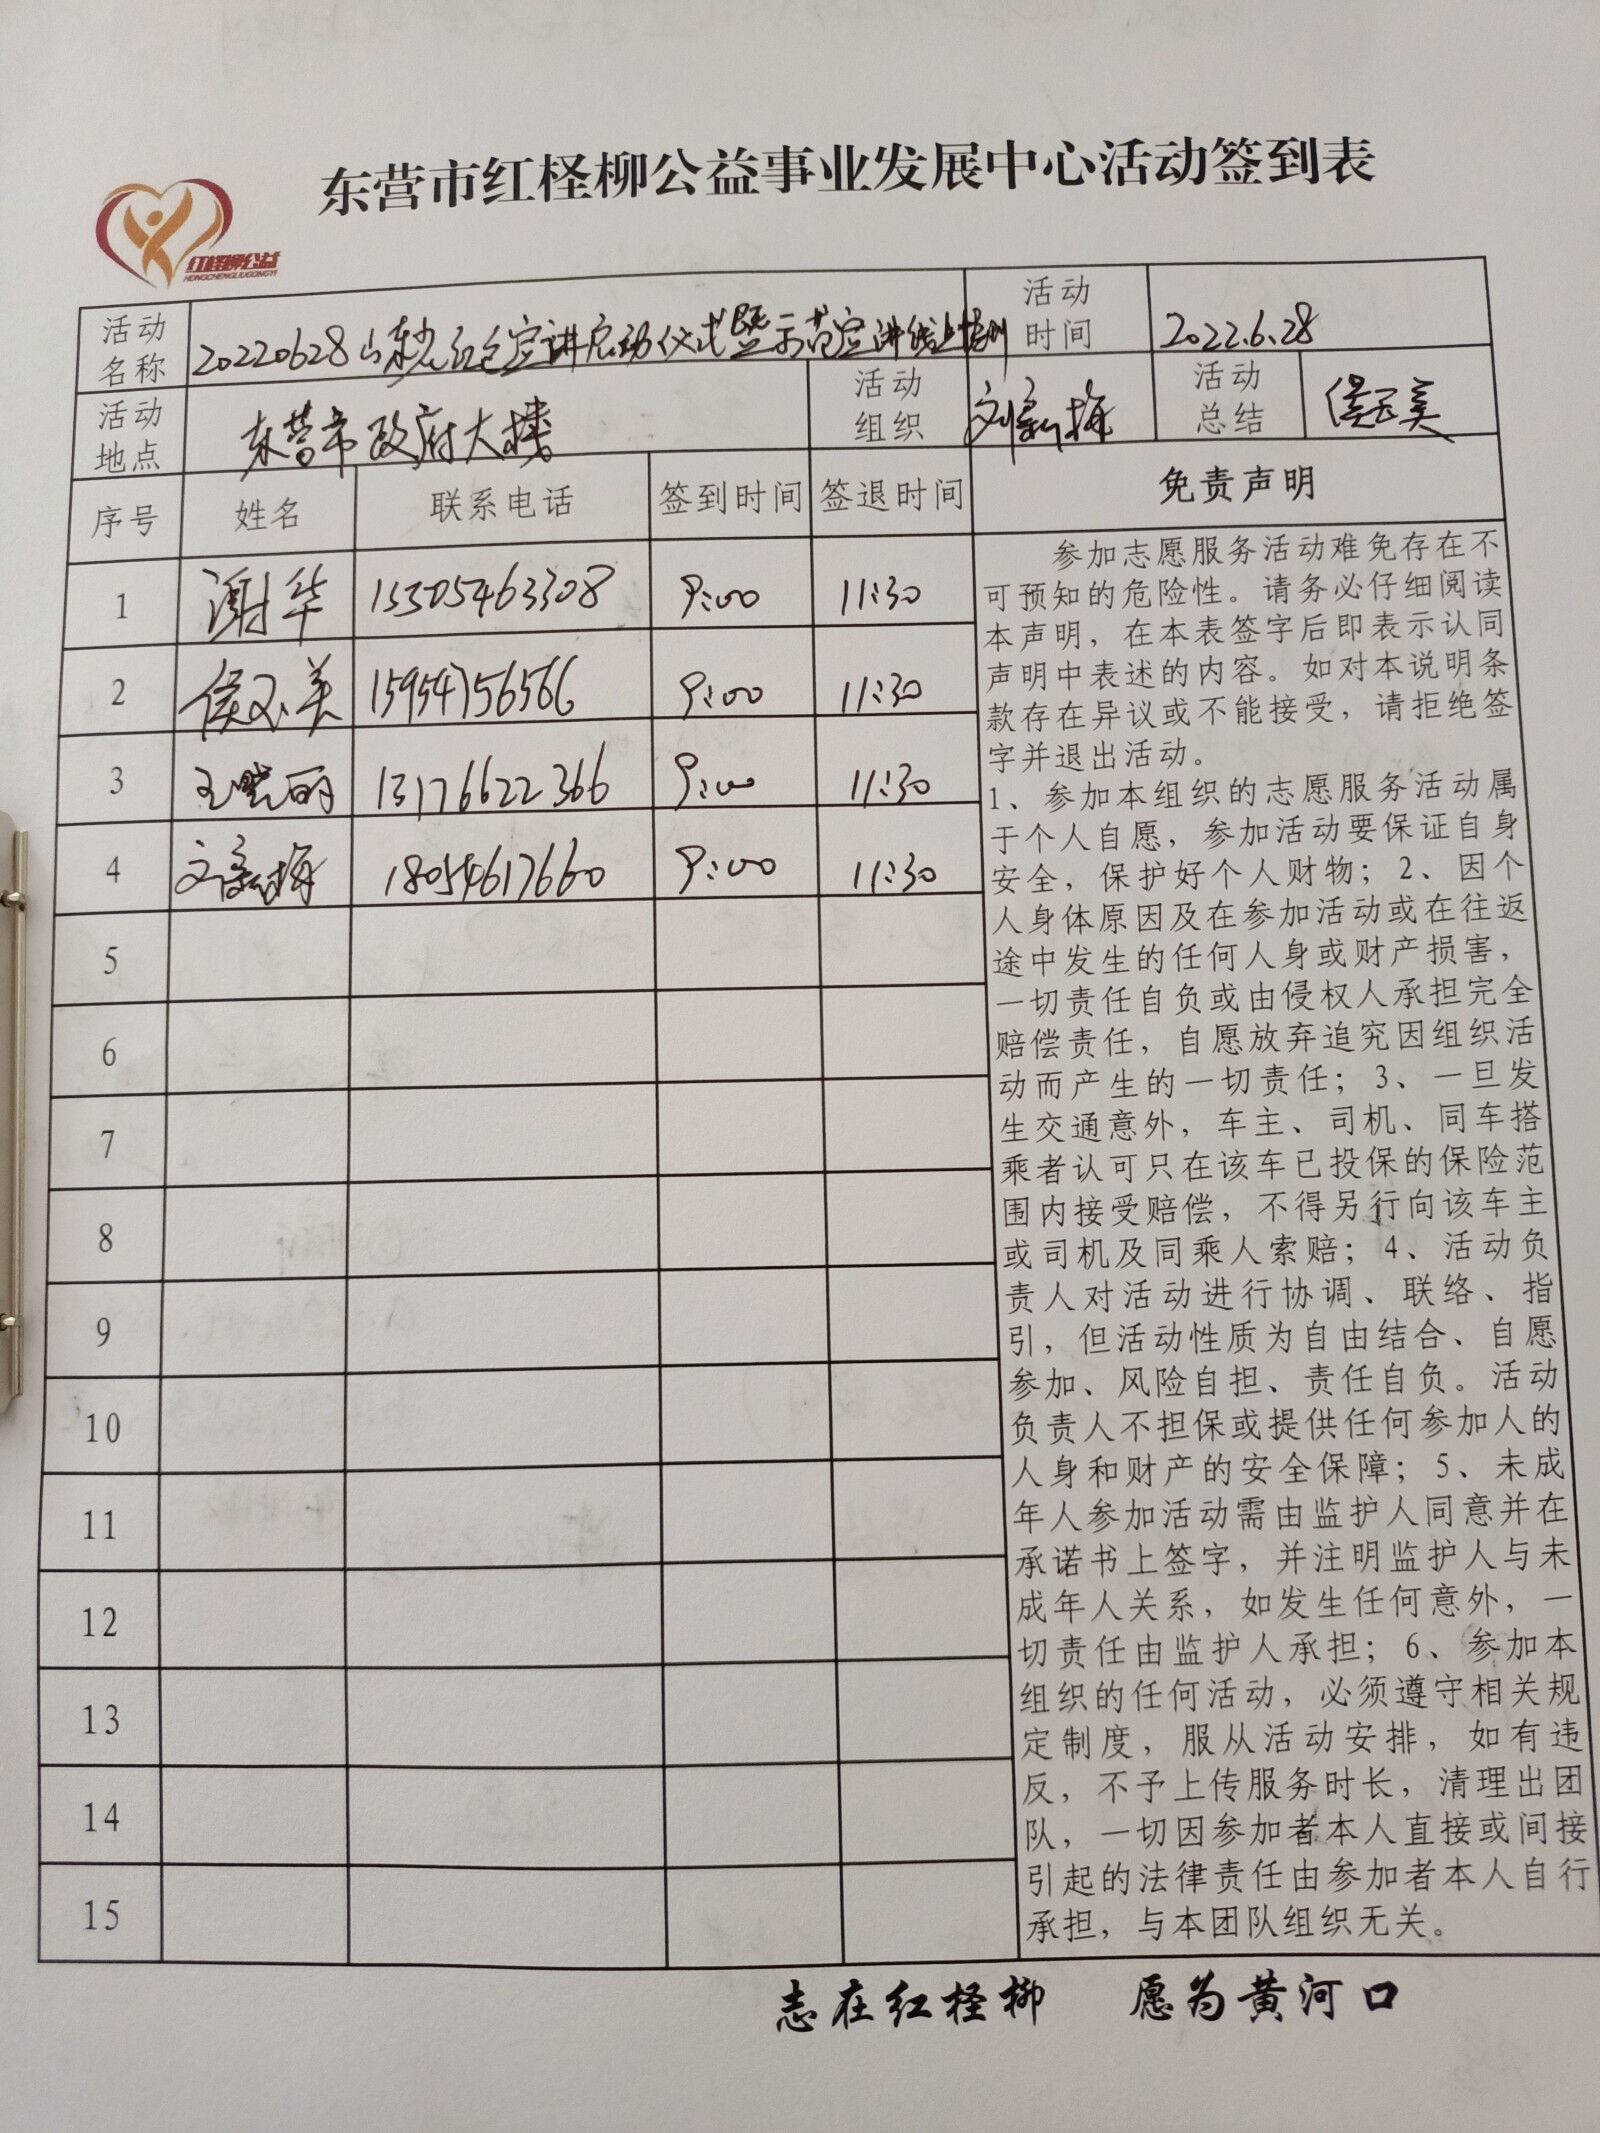 东营市红柽柳公益事业发展中心活动签到表
红柽柳公益
HONGCHENGLIUGONGYI
活动名称 20220628山东 红色宣讲启动仪式暨示范宣讲线上培训 活动时间 2022.6.28
活动地点 东营市政府大楼 活动组织 刘新梅 活动总结 侯玉美
序号 姓名 联系电话 签到时间 签退时间 免责声明
1 谢华 15305463308 9:00 11:30
2 侯玉美 15954756566 9:00 11:30
3 王晓丽 13176622366 9:00 11:30
4 刘新梅 18054617660 9:00 11:30
5
6
7
8
9
10
11
12
13
14
15
参加志愿服务活动难免存在不
可预知的危险性。请务必仔细阅读
本声明，在本表签字后即表示认同
声明中表述的内容。如对本说明条
款存在异议或不能接受，请拒绝签
字并退出活动。
1、参加本组织的志愿服务活动属
于个人自愿，参加活动要保证自身
安全，保护好个人财物；2、因个
人身体原因及在参加活动或在往返
途中发生的任何人身或财产损害，
一切责任自负或由侵权人承担完全
赔偿责任，自愿放弃追究因组织活
动而产生的一切责任；3、一旦发
生交通意外，车主、司机、同车搭
乘者认可只在该车已投保的保险范
围内接受赔偿，不得另行向该车主
或司机及同乘人索赔；4、活动负
责人对活动进行协调、联络、指
引，但活动性质为自由结合、自愿
参加、风险自担、责任自负。活动
负责人不担保或提供任何参加人的
人身和财产的安全保障；5、未成
年人参加活动需由监护人同意并在
承诺书上签字，并注明监护人与未
成年人关系，如发生任何意外，一
切责任由监护人承担；6、参加本
组织的任何活动，必须遵守相关规
定制度，服从活动安排，如有违
反，不予上传服务时长，清理出团
队，一切因参加者本人直接或间接
引起的法律责任由参加者本人自行
承担，与本团队组织无关。
志在红柽柳 愿为黄河口